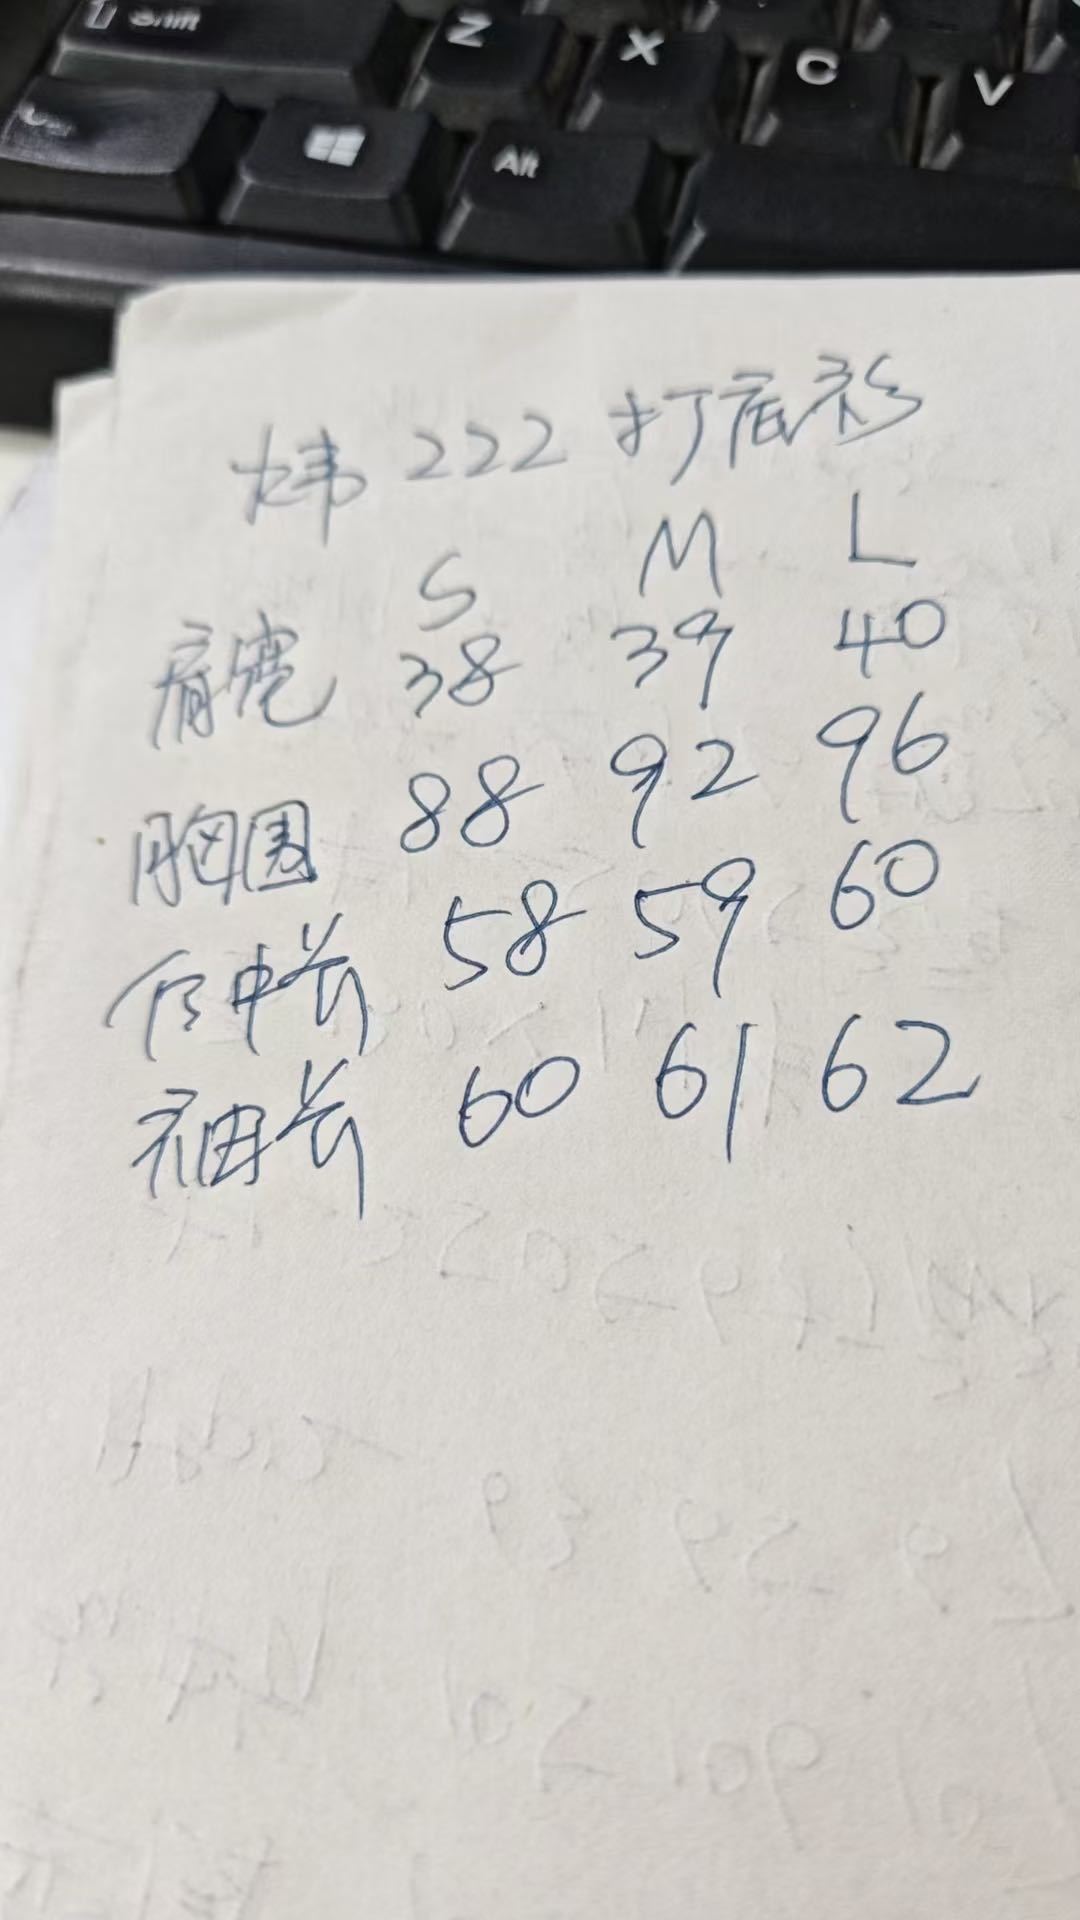 Shift Z X C V
Alt
炜 222 打底衫
S M L
肩宽 38 39 40
胸围 88 92 96
后中长 58 59 60
袖长 60 61 62